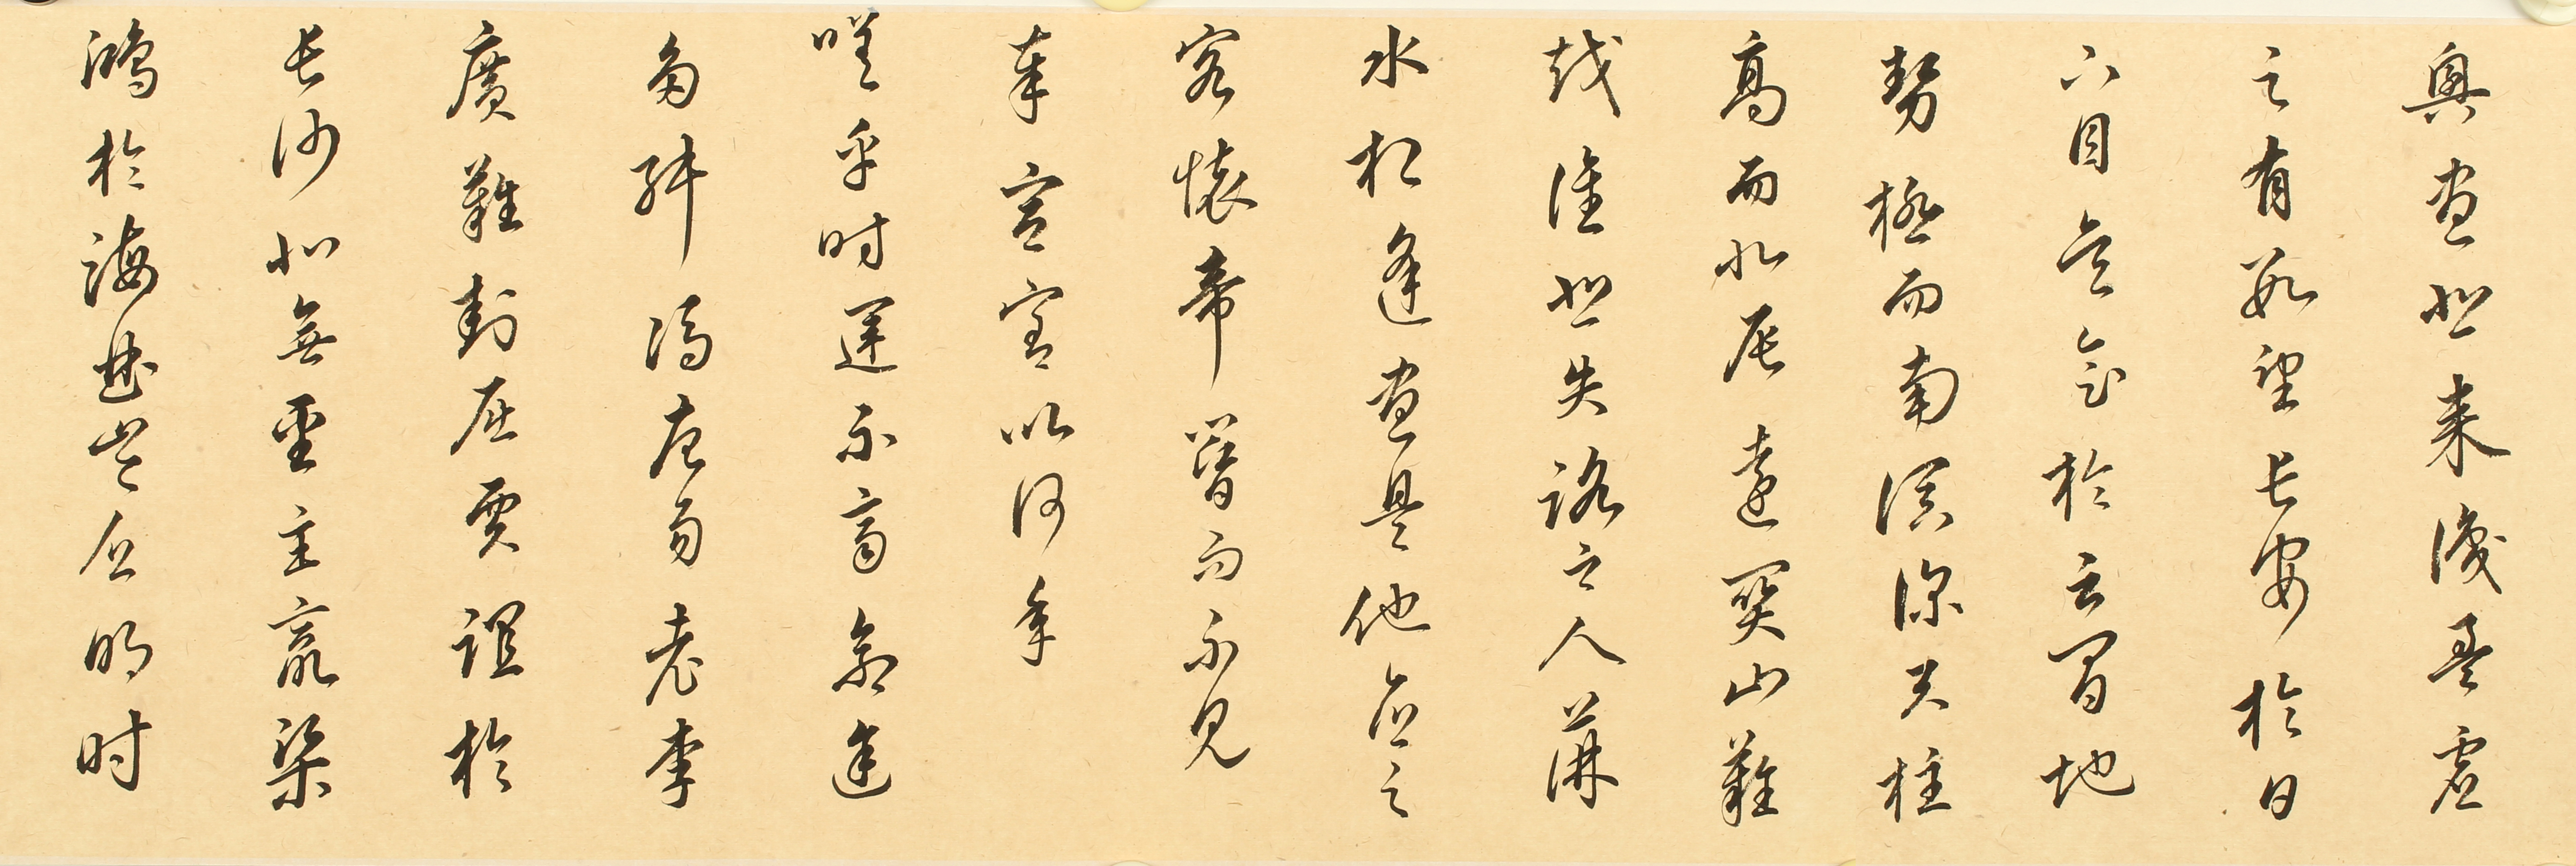 興盡悲来識盈虛
之有數望长安於日
下目吴會於云間地
勢極而南溟深天柱
高而北辰遠關山難
越誰悲失路之人萍
水相逢盡是他鄉之
客懷帝閽而不見
奉宣室以何年
嗟乎时運不齊命途
多舛馮唐易老李
廣難封屈賈誼於
长沙非無聖主竄梁
鴻於海曲豈乏明时